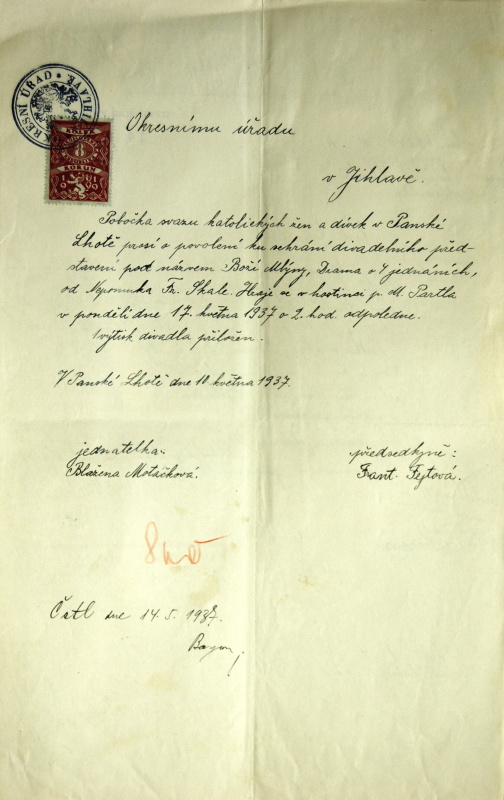 KRESNÍ ÚŘAD * JIHLAVĚ
KOLEK
8
KORUN
1919
Okresnímu úřadu
v Jihlavě.
Pobočka svazu katolických žen a dívek v Panské
Lhotě prosí o povolení ku sehrání divadelního před-
stavení pod názvem Boží Mlýny, Drama o 4 jednáních,
od Nepomuka Fr. Skale. Hraje se v hostinci p. M. Partla
v pondělí dne 17. května 1937 o 2. hod. odpoledne.
1 výtisk divadla přiložen.
V Panské Lhotě dne 10. května 1937.
jednatelka:
Blažena Motáčková.
předsedkyně:
Frant. Fejtová.
8 Kč
Čstl dne 14. 5. 1937.